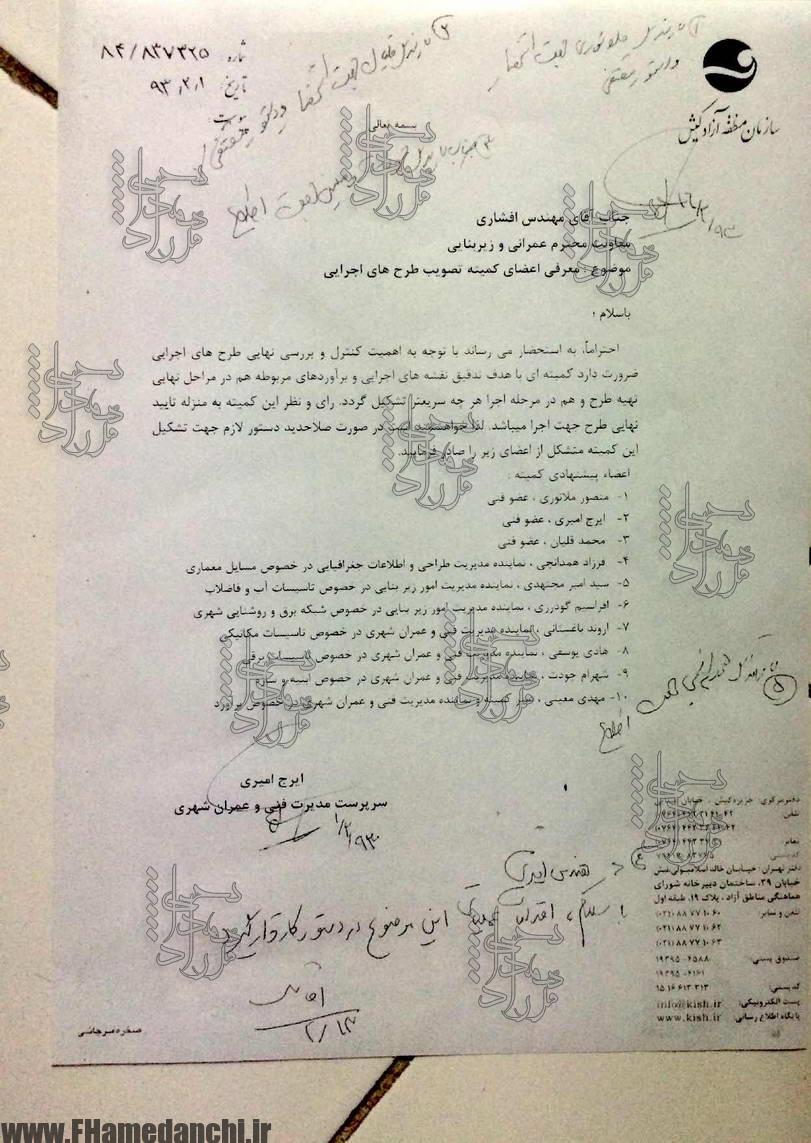 شماره: ۸۴/۸۳۷۳۲۵
تاریخ: ۹۳,۲,۱
پیوست:
سازمان منطقه آزاد کیش
بسمه تعالی
جناب آقای مهندس افشاری
معاونت محترم عمرانی و زیربنایی
موضوع : معرفی اعضای کمیته تصویب طرح های اجرایی
باسلام ؛
احتراماً، به استحضار می رساند با توجه به اهمیت کنترل و بررسی نهایی طرح های اجرایی
ضرورت دارد کمیته ای با هدف تدقیق نقشه های اجرایی و برآوردهای مربوطه هم در مراحل نهایی
تهیه طرح و هم در مرحله اجرا هر چه سریعتر تشکیل گردد. رای و نظر این کمیته به منزله تایید
نهایی طرح جهت اجرا میباشد. لذا خواهشمند است در صورت صلاحدید دستور لازم جهت تشکیل
این کمیته متشکل از اعضای زیر را صادر فرمایید.
اعضاء پیشنهادی کمیته :
۱- منصور ملانوری ، عضو فنی
۲- ایرج امیری ، عضو فنی
۳- محمد قلیان ، عضو فنی
۴- فرزاد همدانچی ، نماینده مدیریت طراحی و اطلاعات جغرافیایی در خصوص مسایل معماری
۵- سید امیر مجتهدی ، نماینده مدیریت امور زیر بنایی در خصوص تاسیسات آب و فاضلاب
۶- افراسیم گودرزی ، نماینده مدیریت امور زیر بنایی در خصوص شبکه برق و روشنایی شهری
۷- اروند باغستانی ، نماینده مدیریت فنی و عمران شهری در خصوص تاسیسات مکانیکی
۸- هادی یوسفی ، نماینده مدیریت فنی و عمران شهری در خصوص تاسیسات برقی
۹- شهرام جودت ، نماینده مدیریت فنی و عمران شهری در خصوص ابنیه و سازه
۱۰- مهدی معینی ، دبیر کمیته و نماینده مدیریت فنی و عمران شهری در خصوص برآورد
ایرج امیری
سرپرست مدیرت فنی و عمران شهری
۹۳/۲/۱
مهندس امیری
با سلام، اقدامات عملیاتی این موضوع در دستور کار قرار گیرد
دفتر مرکزی: جزیره کیش ،
تلفن
نمابر
کد پستی
دفتر تهران: خیابان خالد اسلامبولی نبش
خیابان ۳۹، ساختمان دبیرخانه شورای
هماهنگی مناطق آزاد، پلاک ۱۹، طبقه اول
تلفن و نمابر: (۰۲۱) ۸۸ ۷۷ ۱۰ ۶۰
(۰۲۱) ۸۸ ۷۷ ۱۰ ۶۲
(۰۲۱) ۸۸ ۷۷ ۱۰ ۶۳
صندوق پستی: ۱۹۳۹۵ -۴۵۸۸
۱۹۳۹۵ -۴۱۶۱
کد پستی: ۱۵ ۱۶ ۶۱۳ ۳۱۳
پست الکترونیکی: info@kish.ir
پایگاه اطلاع رسانی: www.kish.ir
صخره مرجانی
www.FHamedanchi.ir